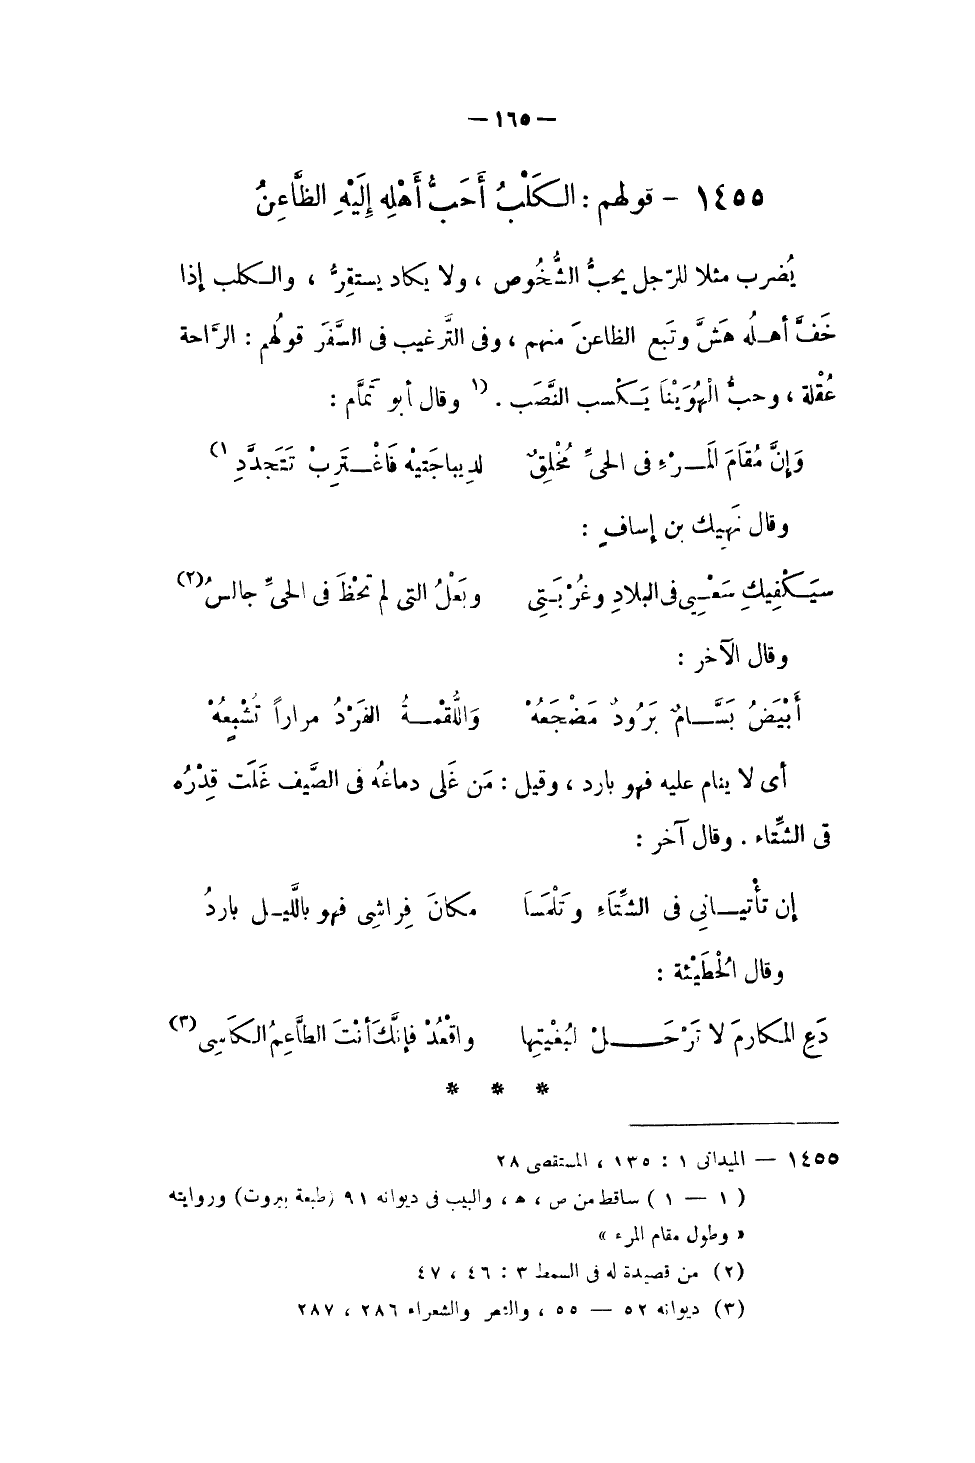 — ١٦٥ —
١٤٥٥ - قولهم : الكَلْبُ أَحَبُّ أَهْلِه إِلَيْهِ الظَّاعِنُ
يُضرب مثلا للرّجل يحبُّ الشُّخُوص ، ولا يكاد يستقِرُّ ، والكلب إذا
خَفَّ أهلُه هَشَّ وتَبع الظاعنَ منهم ، وفى التَّرغيب فى السَّفَر قولُهم : الرَّاحة
عُقْلة ، وحبُّ الْهُوَيْنَا يَكسب النَّصَب . (١ وقال أبو تَمَّام :
وَإِنَّ مُقَامَ الَمرْءِ فى الحىِّ مُخْلِقٌ لديباجَتيْه فَاغْتَرِبْ تَتَجدَّدِ ١)
وقال نَهِيك بن إساف :
سيَكْفِيكِ سَعْيِى فى البلادِ وغُرْبَتِى وبَعْلُ التى لم تحْظَ فى الحىِّ جالسُ (٢)
وقال الآخر :
أَبْيَضُ بَسَّامٌ بَرَودٌ مَضْجَعُهْ وَاللُّقْمةُ الفَرْدُ مراراً تُشْبِعُهْ
أى لا ينام عليه فهو بارد ، وقيل : مَن غَلى دماغُه فى الصَّيف غَلَت قِدْرُه
فى الشِّتاء . وقال آخر :
إن تأْتيانى فى الشِّتَاءِ وَتَلْمَسَا مكانَ فِراشِى فهو باللَّيل باردُ
وقال الُحْطَيْئة :
دَعِ المكارمَ لا تَرْحَلْ لبُغْيتِها واقْعُدْ فإنَّكَ أنْتَ الطَّاعِمُ الكَاسِى (٣)
* * *
١٤٥٥ — الميدانى ١ : ١٣٥ ، المستقصى ٢٨
( ١ — ١ ) ساقط من ص ، ه ، والبيب فى ديوانه ٩١ (طبعة بيروت) وروايته
« وطول مقام المرء »
(٢) من قصيدة له فى السمط ٣ : ٤٦ ، ٤٧
(٣) ديوانه ٥٢ — ٥٥ ، والشعر والشعراء ٢٨٦ ، ٢٨٧